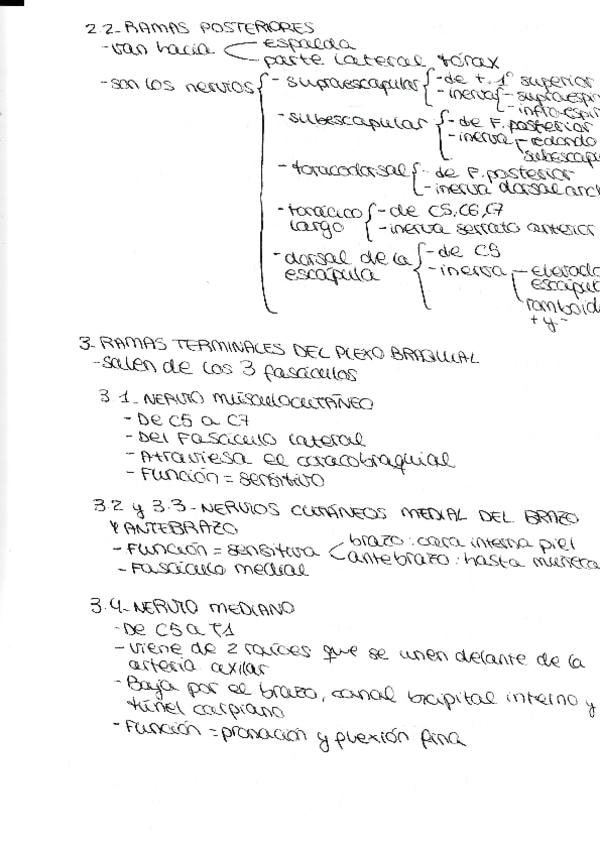 2.2-RAMAS POSTERIORES
-van hacia espalda
parte lateral tórax
-son los nervios - supraescapular -de t. 1º superior
-inerva - supraespi
- infraespi
-subescapular -de F. posterior
-inerva redondo
subescapu
-toracodorsal - de F. posterior
-inerva dorsal anc
-torácico largo -de C5, C6, C7
-inerva serrato anterior
-dorsal de la escápula -de C5
-inerva elevado
escápul
romboid
+ y -
3-RAMAS TERMINALES DEL PLEXO BRAQUIAL
-salen de los 3 fascículos
3.1-NERVIO MUSCULOCUTÁNEO
- De C5 a C7
- Del Fascículo lateral
- Atraviesa el coracobraquial
- Función = sensitivo
3.2 y 3.3-NERVIOS CUTÁNEOS MEDIAL DEL BRAZO
Y ANTEBRAZO
- Función = sensitiva brazo: cara interna piel
antebrazo: hasta muñeca
- Fascículo medial
3.4-NERVIO MEDIANO
-De C5 a T1
-viene de 2 raíces que se unen delante de la
arteria axilar
-Baja por el brazo, canal bicipital interno y
túnel carpiano
-Función = pronación y flexión fina